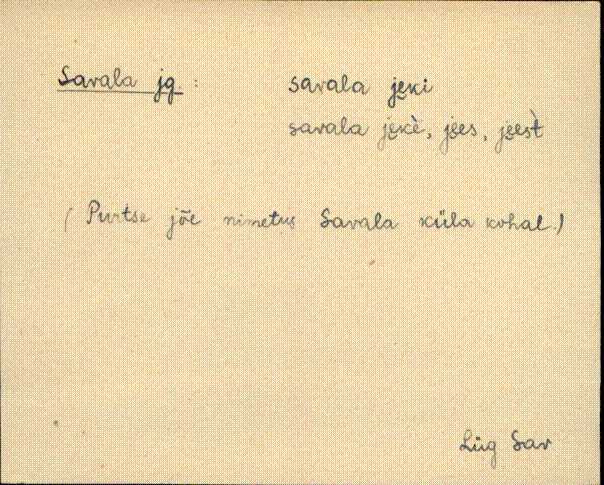 Savala jg. : savala je̮ki
savala je̮kè, je̮es, je̮est̀
(Purtse jõe nimetus Savala küla kohal.)
Lüg Sav